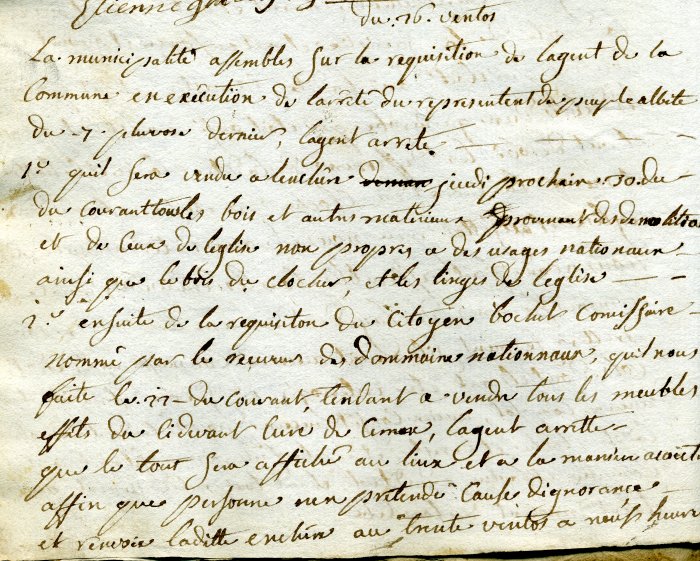 Etienne
du 26 ventos
La municipalité assemblés sur la requisition de lagent de la
Commune en exécution de larrêté du représentent du peuple albite
du 7 pluvose dernier, lagent arrete
1° quil sera vendu a lenchère jeudi prochain 30 du
du courant tous les bois et autres materiaux provenant des demolition
et de Ceux de leglise non propres a des usages nationaux
ainsi que le bois du clocher, et les linges de leglise
2° ensuite de la requisiton du Citoyen bochet Comissaire
nommé par le receveur des dommaine nationnaux, quil nous
faite le 22 du courant, tendant a vendre tous les meubles
effets du cidevant Curé de lagent arrette
que le tout sera affiché au lieux et a la maniere
affin que personne nen pretende Cause dignorance
et renvoie laditte enchere au trente ventos a neuf heure